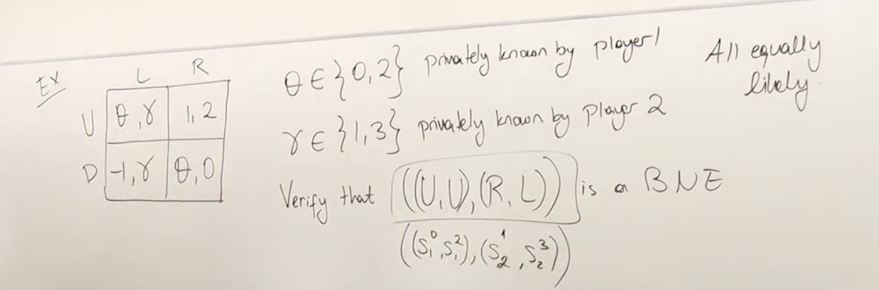 Ex
L R
U θ,γ 1,2
D -1,γ θ,0
θ ∈ {0,2} privately known by player 1
γ ∈ {1,3} privately known by player 2
All equally
likely.
Verify that ((U,U),(R,L)) is a BNE
((s₁⁰,s₁²),(s₂¹,s₂³))